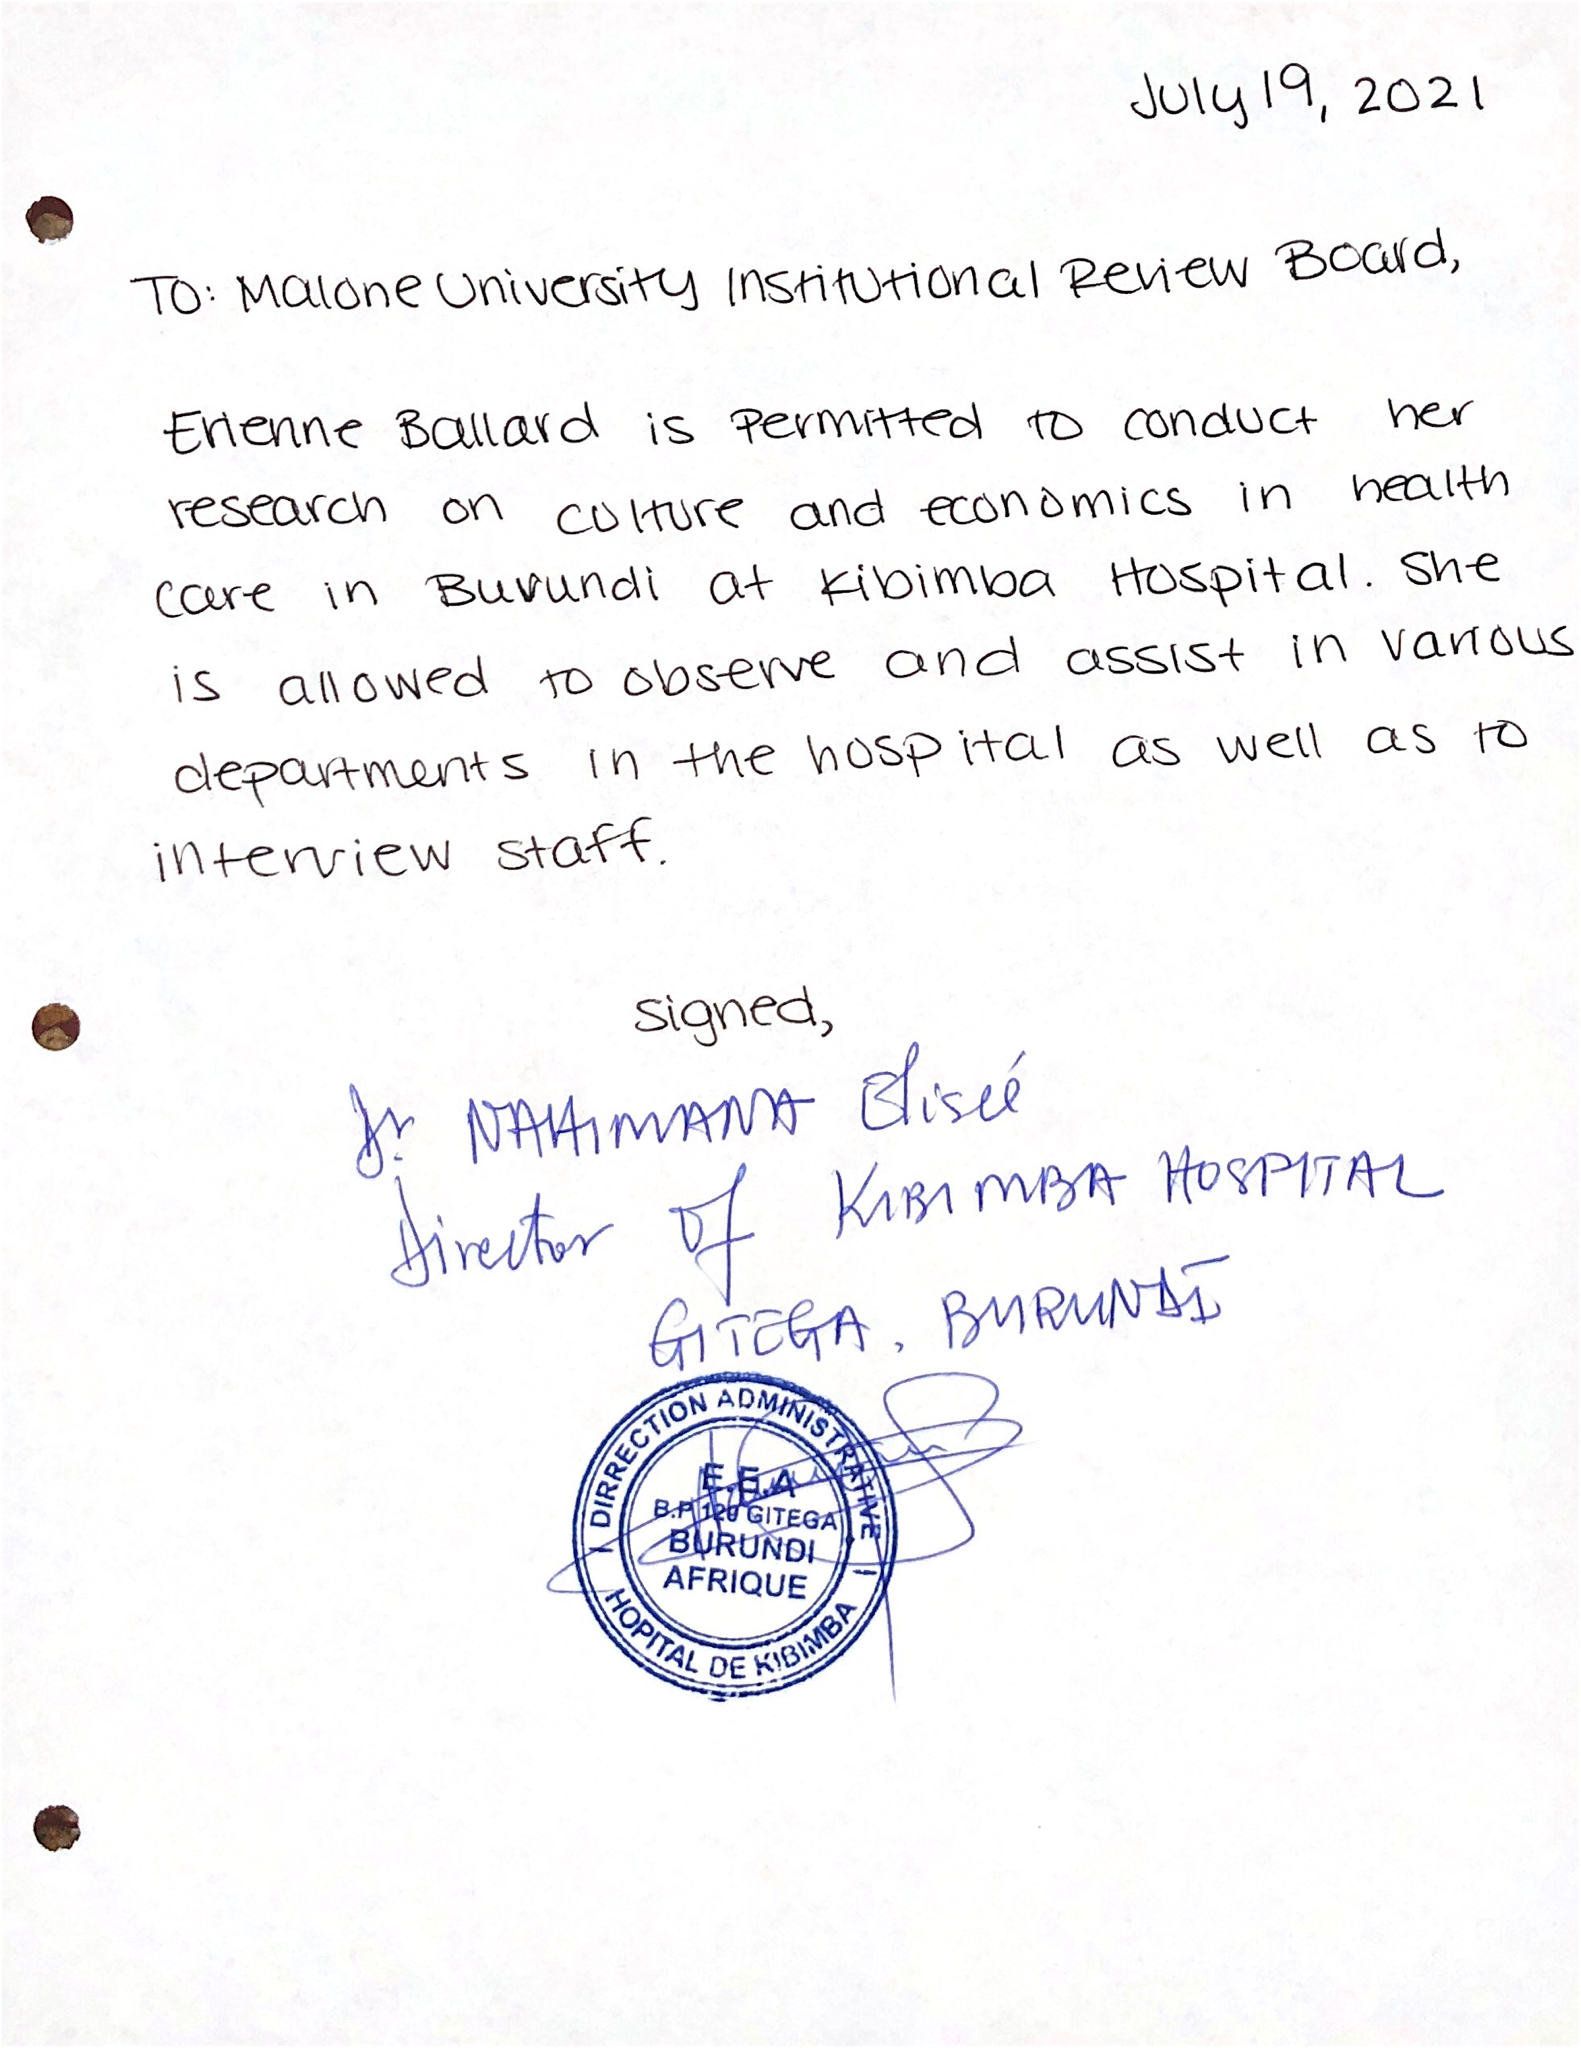 July 19, 2021
To: Malone University Institutional Review Board,
Erienne Ballard is permitted to conduct her
research on culture and economics in health
care in Burundi at Kibimba Hospital. She
is allowed to observe and assist in various
departments in the hospital as well as to
interview staff.
signed,
Dr NAHIMANA Elisée
Director of KIBIMBA HOSPITAL
GITEGA, BURUNDI
DIRRECTION ADMINISTRATIVE
E.E.A
B.P 120 GITEGA
BURUNDI
AFRIQUE
HOPITAL DE KIBIMBA